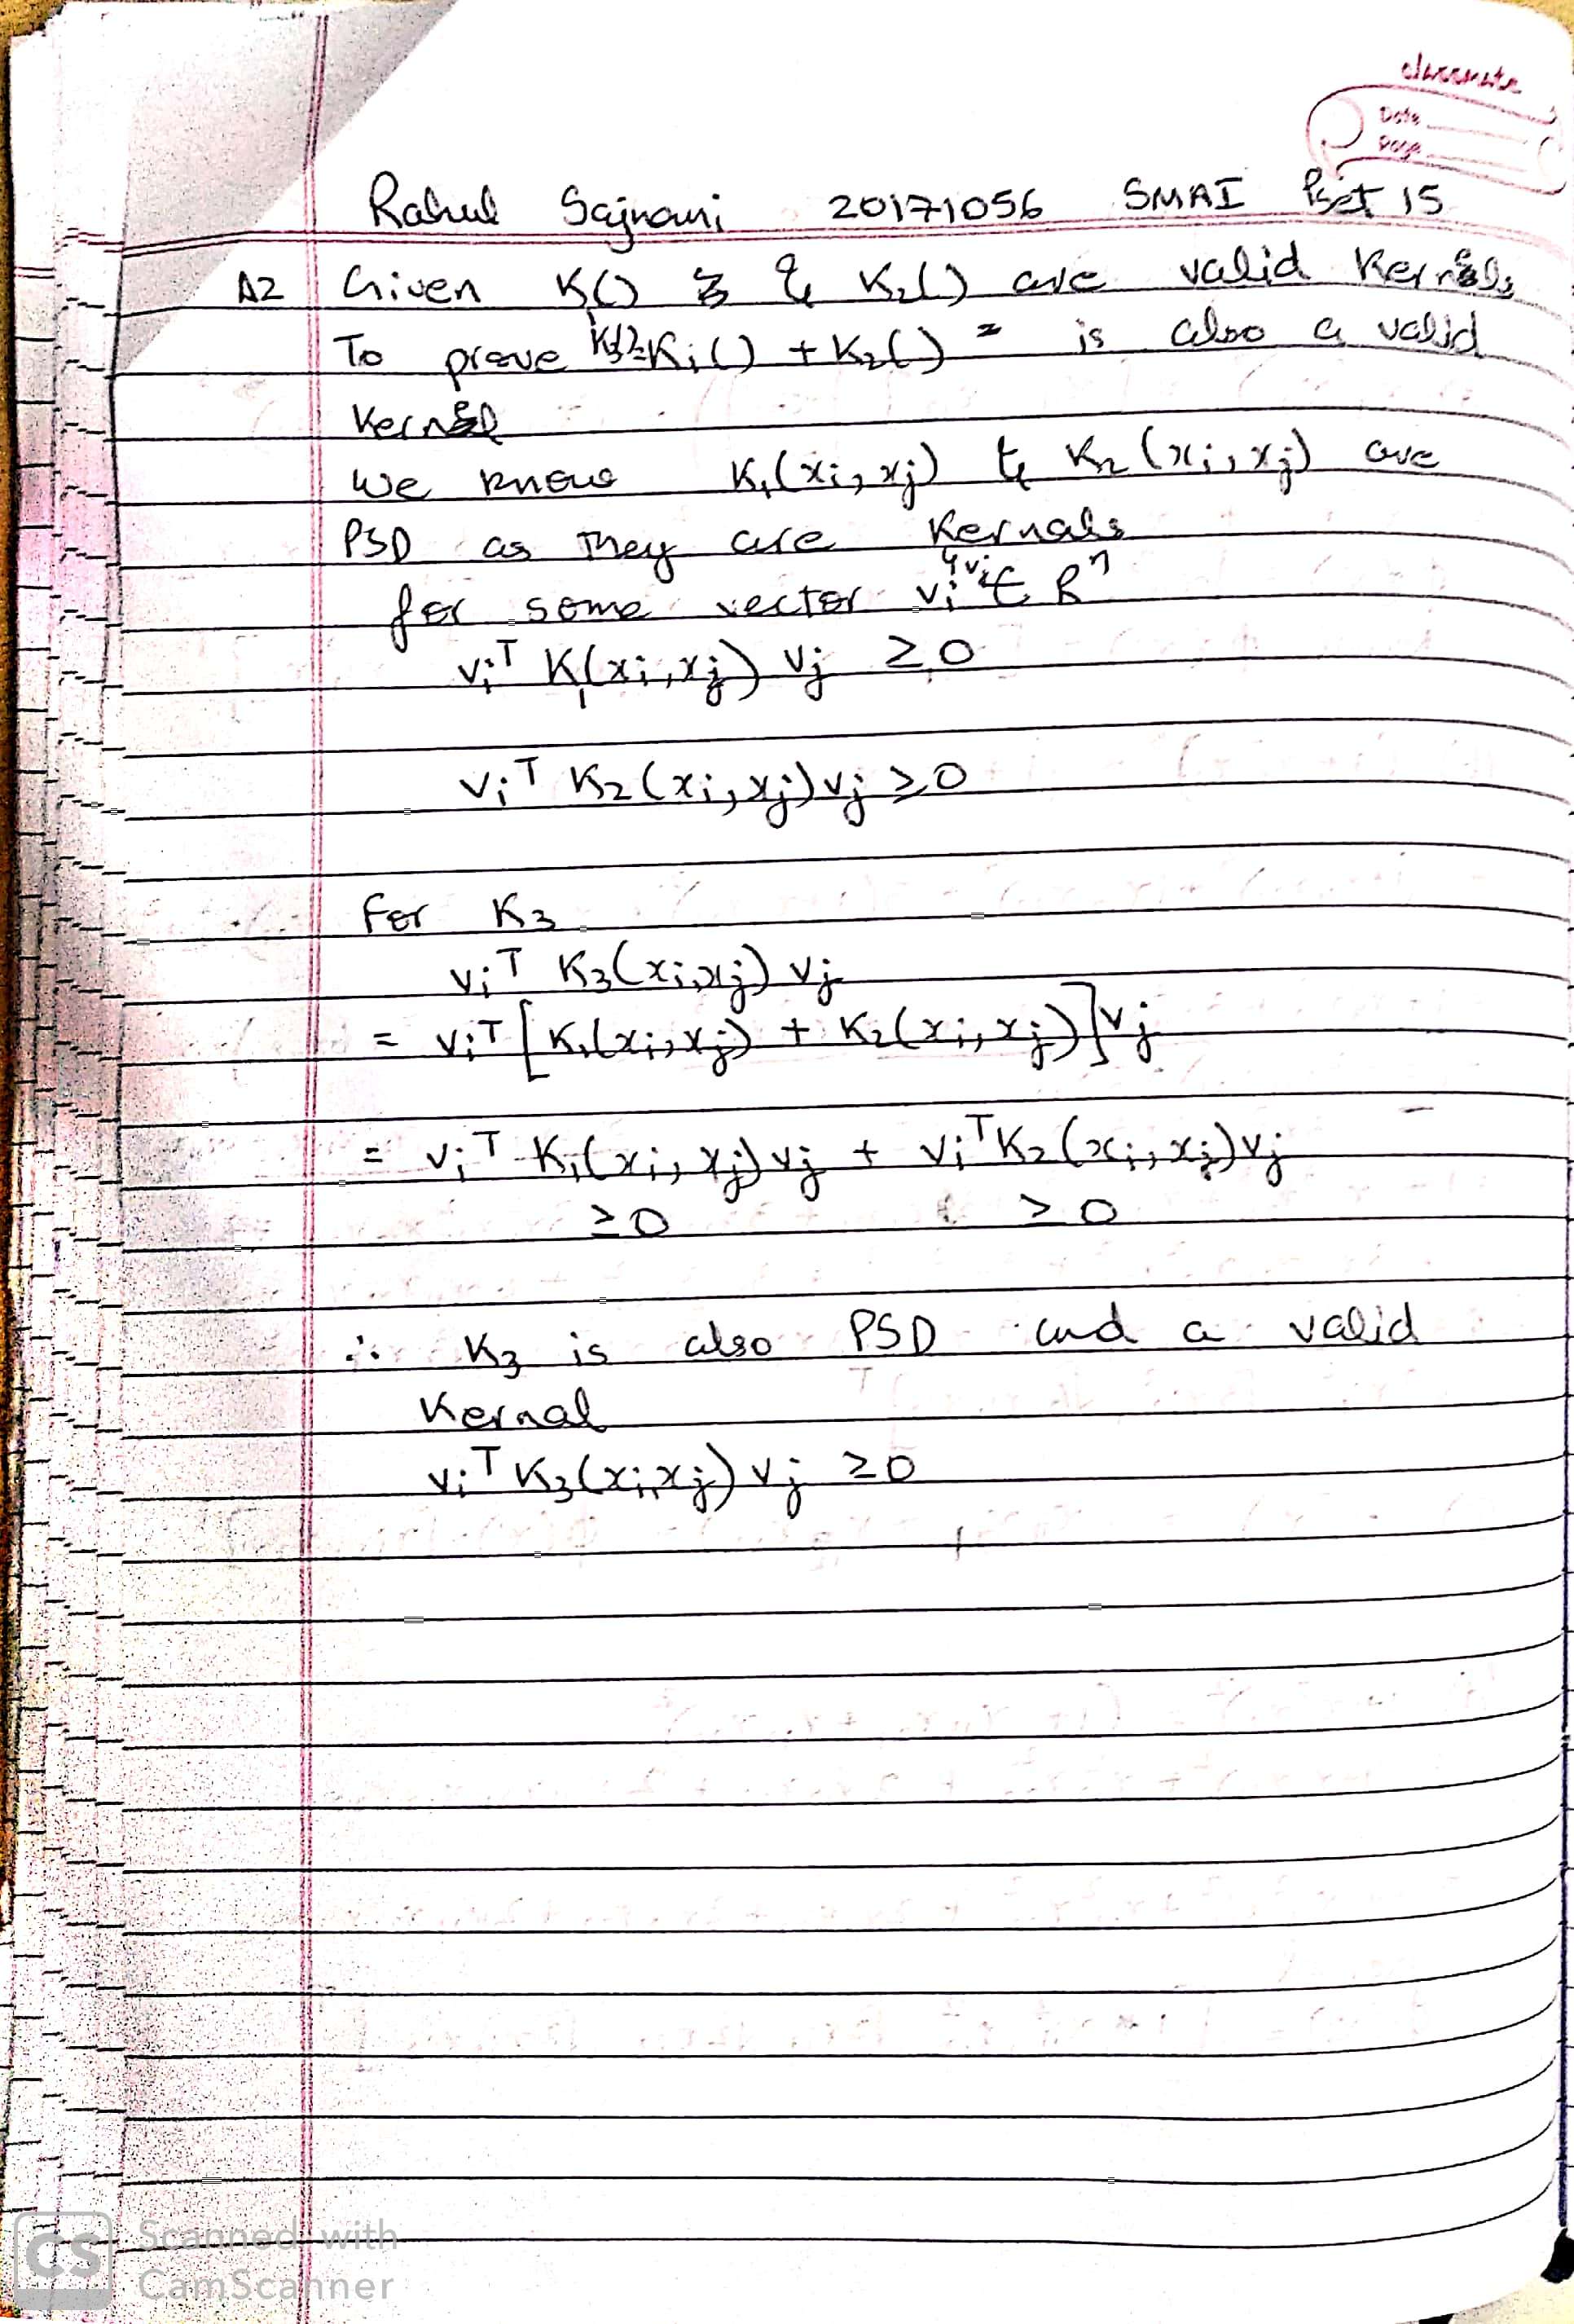 classmate
Date
Page
Rahul Sajnani 20171056 SMAI Pset 15
A2 Given K₁() & K₂() are valid Kernels
To prove K₃()=K₁() + K₂() is also a valid
Kernel
We know K₁(xi, xj) & K₂(xi, xj) are
PSD as they are Kernals
for some vector vi & vj ∈ Rⁿ
viᵀ K₁(xi, xj) vj ≥ 0
viᵀ K₂(xi, xj) vj ≥ 0
For K₃
viᵀ K₃(xi, xj) vj
= viᵀ [K₁(xi, xj) + K₂(xi, xj)] vj
= viᵀ K₁(xi, xj) vj + viᵀ K₂(xi, xj) vj
≥ 0 ≥ 0
∴ K₃ is also PSD and a valid
Kernal
viᵀ K₃(xi, xj) vj ≥ 0
CS Scanned with
CamScanner